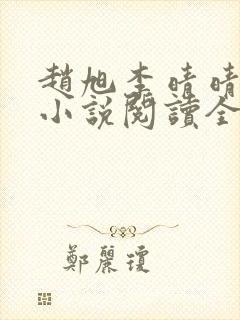 趙旭李晴晴
小說閱讀全
鄭麗瓊